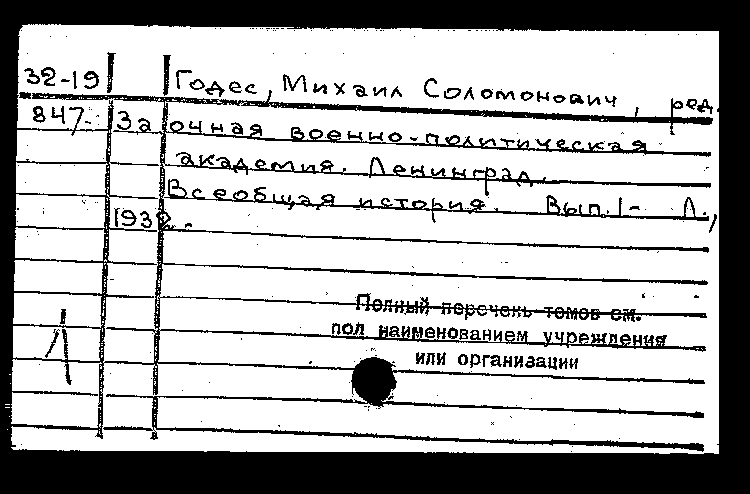 32-19 Годес, Михаил Соломонович, ред.
847- Заочная военно-политическая
академия. Ленинград.
Всеобщая история. Вып. 1- Л.,
1932-.
Полный перечень томов см.
под наименованием учреждения
или организации
Л